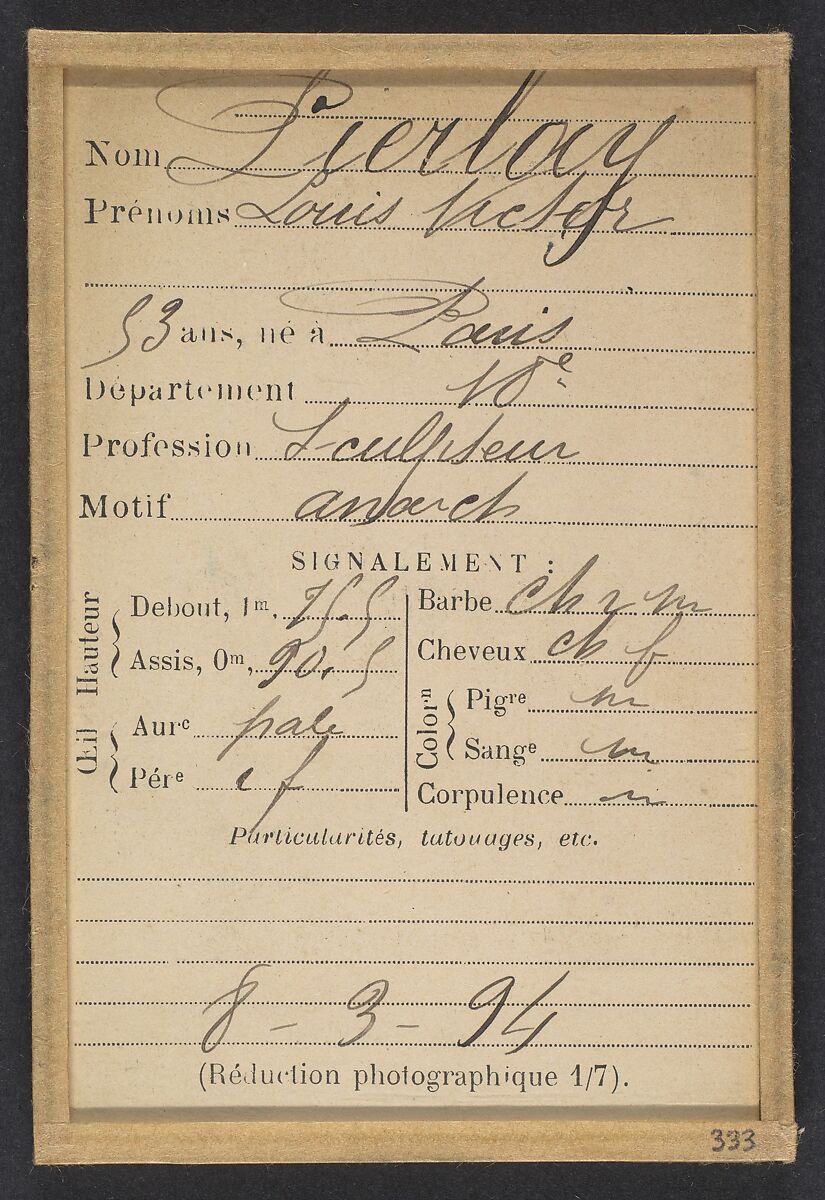 Nom Pierlay
Prénoms Louis Victor
53 ans, né à Paris
Département 18e
Profession Sculpteur
Motif anarch
SIGNALEMENT :
Hauteur
Debout, 1m, 75.5
Assis, 0m, 90.5
Œil
Aure pale
Pére c f
Barbe ch r m
Cheveux ch f
Colorn
Pigre m
Sange m
Corpulence m
Particularités, tatouages, etc.
8 - 3 - 94
(Réduction photographique 1/7).
333